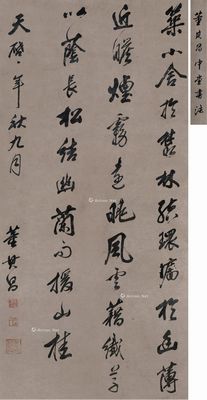 董其昌中堂書法
築小舍於叢林結環墉於幽薄
近瞻煙霧遠睇風雲藉纖草
以蔭長松結幽蘭而援山桂
天啓二年秋九月
董其昌